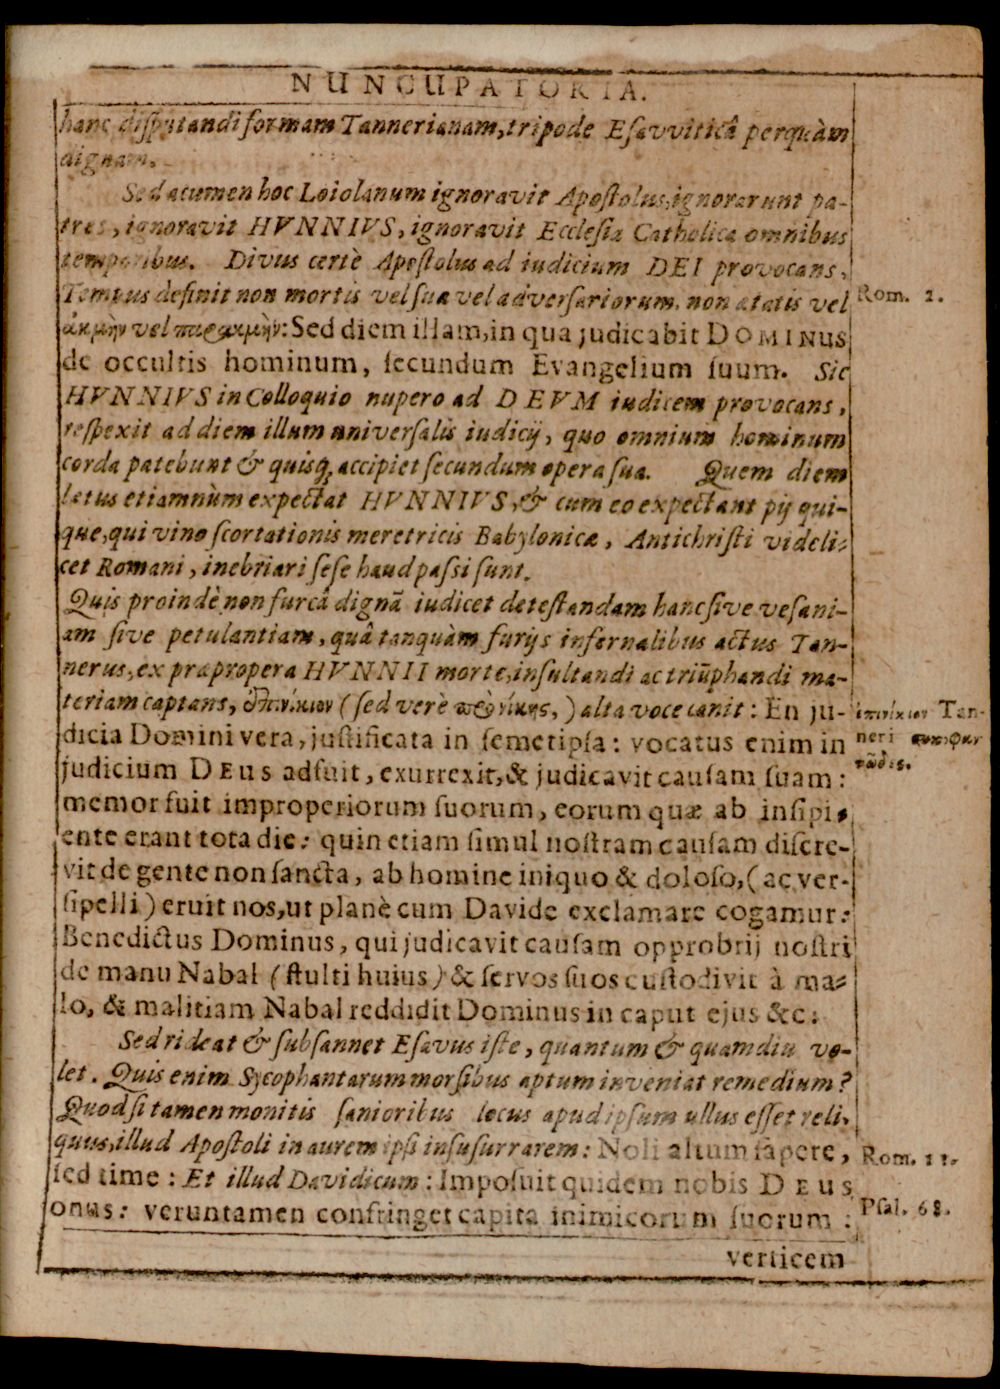 NUNCUPATORIA.
hanc disputandi formam Tannerianam, tripode Esavviticâ perquàm
dignam.
Sed acumen hoc Loiolanum ignoravit Apostolus, ignorarunt pa-
tres, ignoravit HVNNIVS, ignoravit Ecclesia Catholica omnibus
temporibus. Divus certè Apostolus ad iudicium DEI provocans,
Tempus definit non mortis vel suæ vel adversariorum, non ætatis vel
Rom. 2.
ἀκμὴν vel παρακμὴν: Sed diem illam, in qua judicabit DOMINUS
de occultis hominum, secundum Evangelium suum. Sic
HVNNIVS in Colloquio nupero ad DEVM iudicem provocans,
respexit ad diem illum universalis iudicij, quo omnium hominum
corda patebunt & quisq; accipiet secundum opera sua. Quem diem
lætus etiamnùm expectat HVNNIVS, & cum eo expectant pij qui-
que, qui vino scortationis meretricis Babylonicæ, Antichristi videli-
cet Romani, inebriari sese haud passi sunt.
Quis proindè non furcâ dignã iudicet detestandam hanc sive vesani-
am sive petulantiam, quâ tanquàm furijs infernalibus actus Tan-
nerus, ex præpropera HVNNII morte, insultandi ac triũphandi ma-
teriam captans, ἐπινίκιον (sed verè πρὸ νίκης,) alta voce canit: En ju-
ἐπινίκιον Tan-
dicia Domini vera, justificata in semetipsa: vocatus enim in
neri
judicium DEUS adfuit, exurrexit, & judicavit causam suam:
memor fuit improperiorum suorum, eorum quæ ab insipi-
ente erant tota die: quin etiam simul nostram causam discre-
vit de gente non sancta, ab homine iniquo & doloso, (ac ver-
sipelli) eruit nos, ut planè cum Davide exclamare cogamur:
Benedictus Dominus, qui judicavit causam opprobrij nostri
de manu Nabal (stulti huius) & servos suos custodivit à ma-
lo, & malitiam Nabal reddidit Dominus in caput ejus &c:
Sed rideat & subsannet Esavus iste, quantum & quamdiu vo-
let. Quis enim Sycophantarum morsibus aptum inveniat remedium?
Quod si tamen monitis sanioribus locus apud ipsum ullus esset reli-
quus, illud Apostoli in aurem ipsi insusurrarem: Noli altum sapere,
Rom. 11.
sed time: Et illud Davidicum: Imposuit quidem nobis DEUS
onus: veruntamen confringet capita inimicorum suorum:
Psal. 68.
verticem